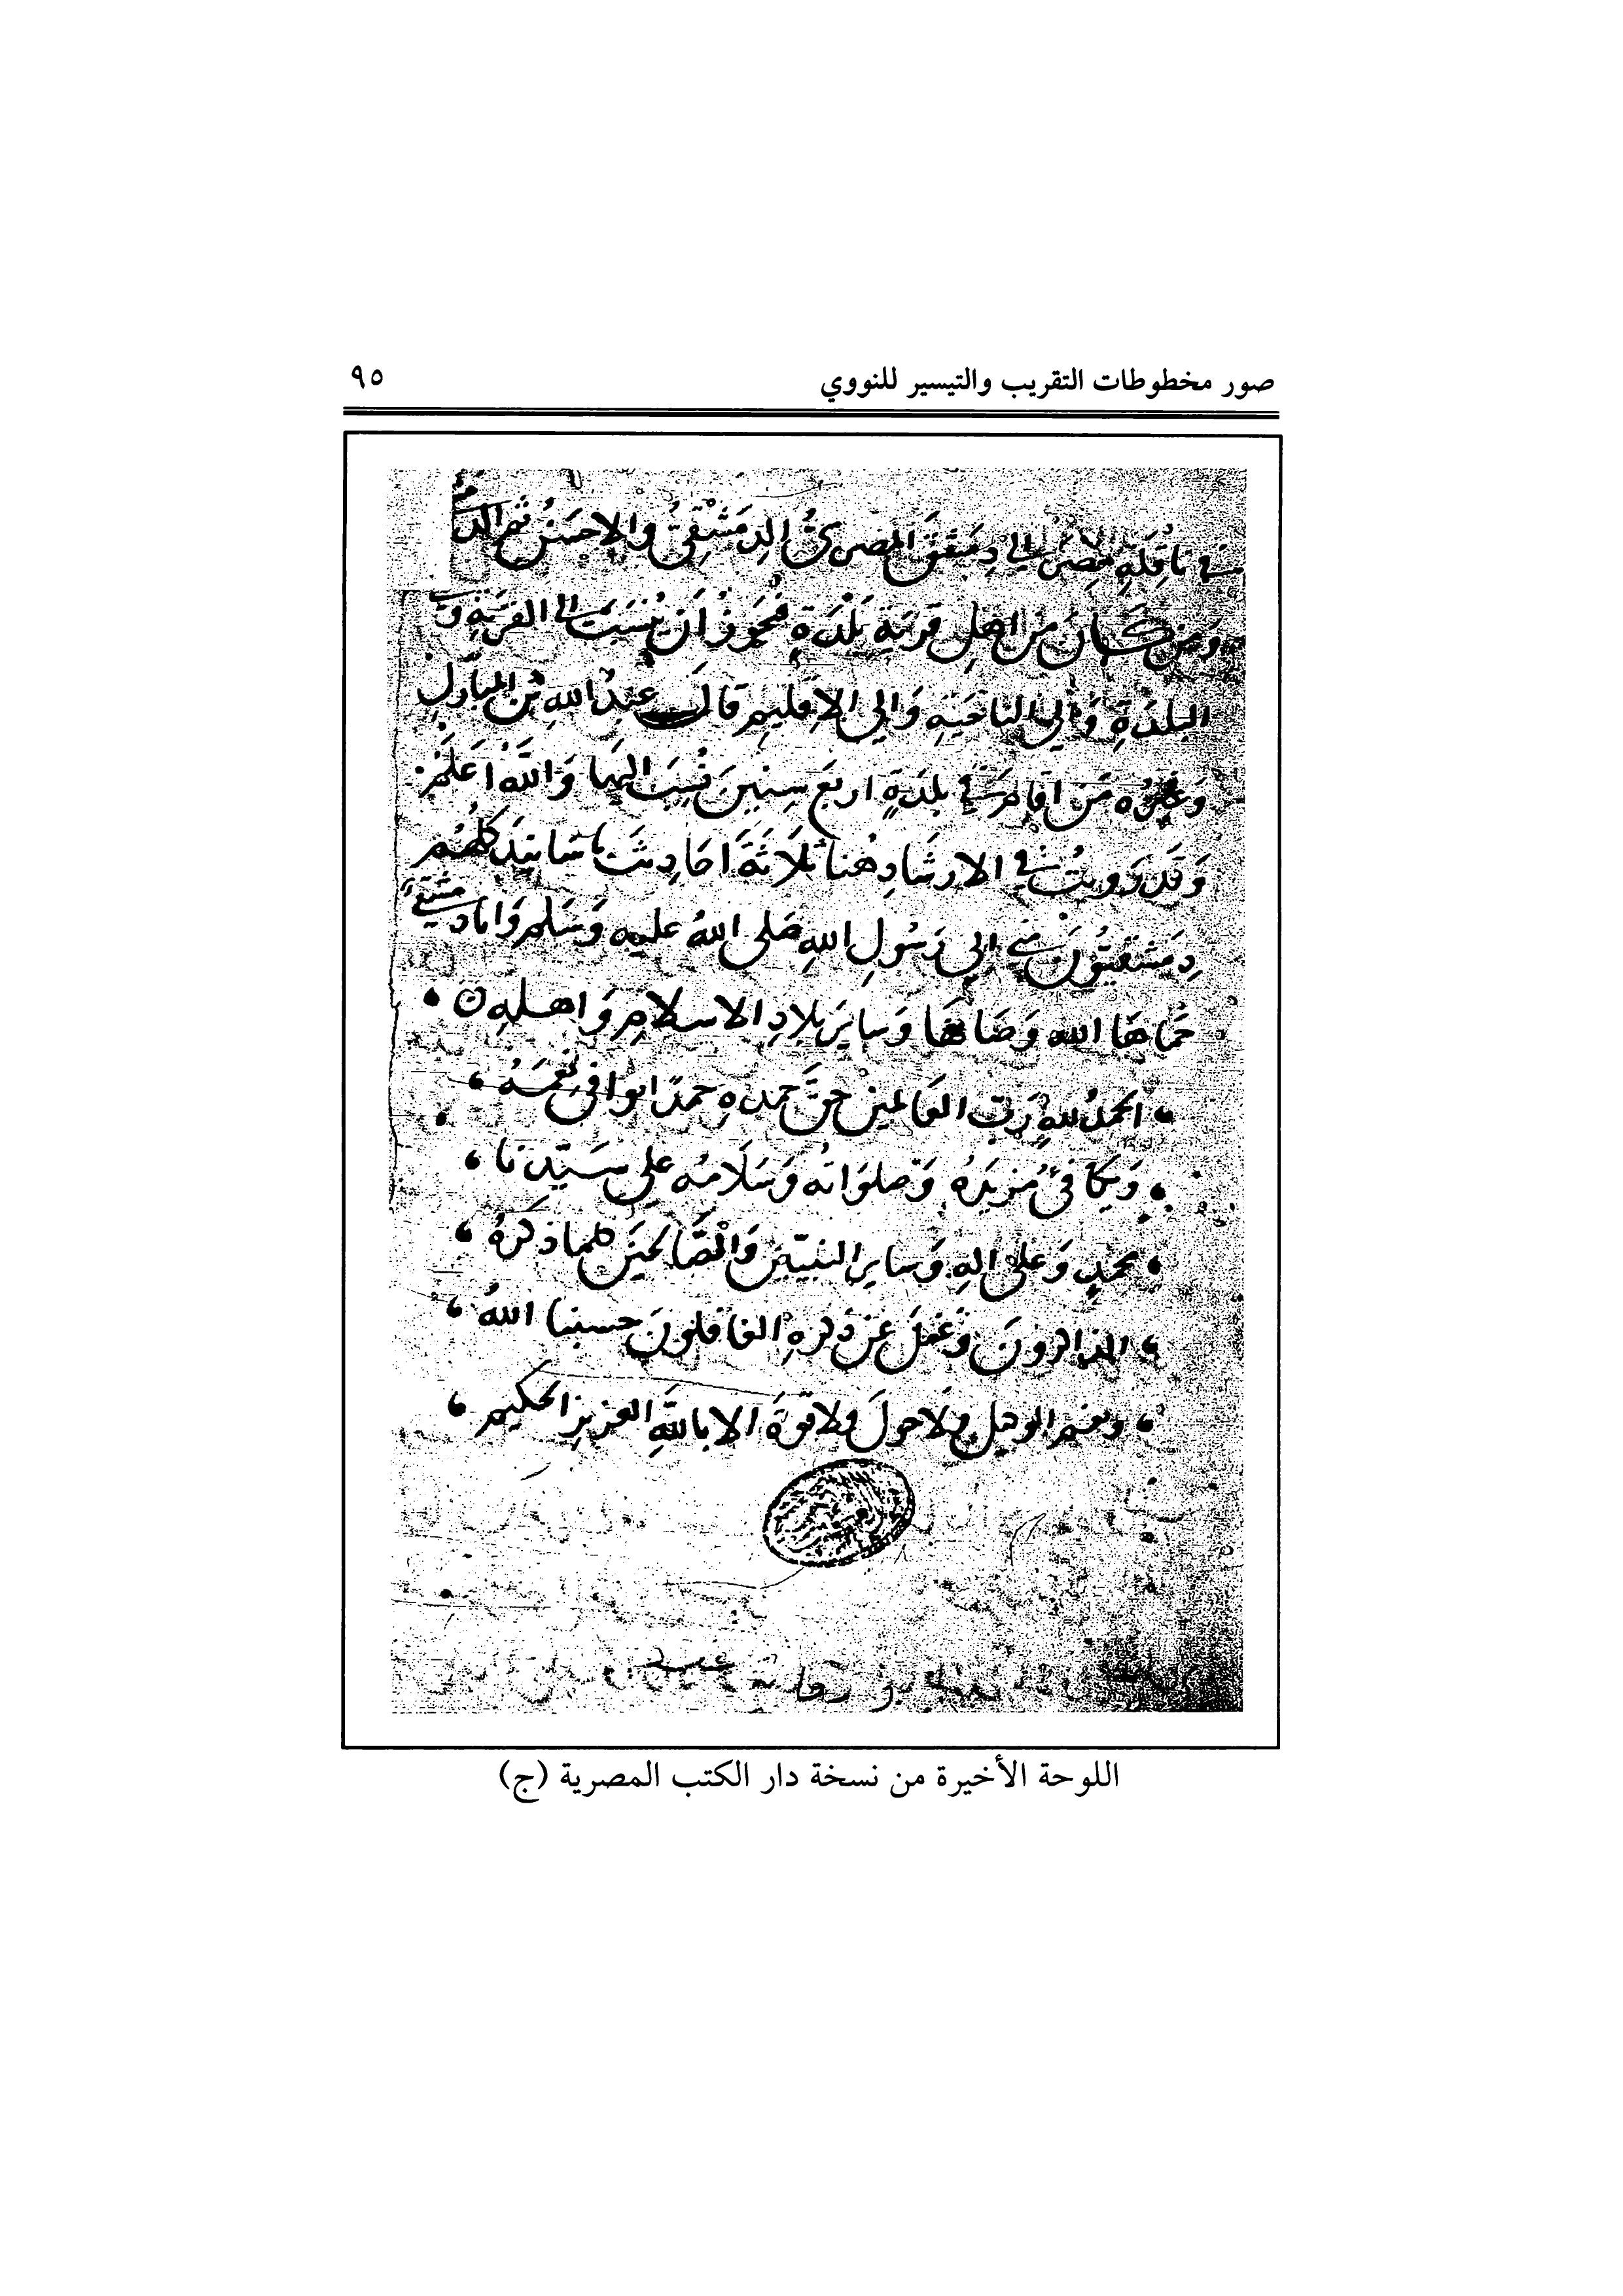 صور مخطوطات التقريب والتيسير للنووي
٩٥
في ناقلة مصر إلى دمشق المصري الدمشقي والاحسن ثم الدم
ومن كان من اهل قرية بلدة فيجوز ان ينسب الى القرية و
البلدة والي الناحية والي الاقليم قال عبد الله بن المبارك
وغيره من اقام في بلدة اربع سنين نسب اليها والله اعلم
وقد رويت في الارشاد هنا ثلاثة احاديث باسانيد كلهم
دمشقيون مني الي رسول الله صلى الله عليه وسلم وانا دمشقي
حماها الله وصانها وساير بلاد الاسلام واهله
الحمد لله رب العالمين حق حمده حمدا يوافي نعمه
ويكافئ مزيده وصلواته وسلامه على سيدنا
محمد وعلى اله وساير النبيين والصالحين كلما ذكره
الذاكرون وغفل عن ذكره الغافلون حسبنا الله
ونعم الوكيل ولا حول ولا قوة الا بالله العزيز الحكيم
اللوحة الأخيرة من نسخة دار الكتب المصرية (ج)